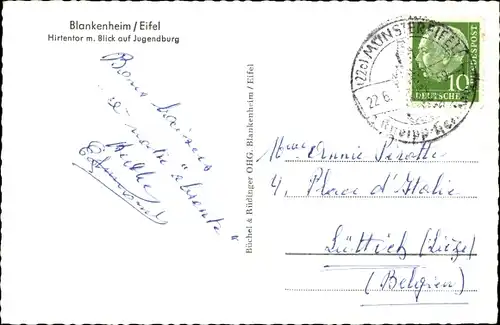 Blankenheim/Eifel
Hirtentor m. Blick auf Jugendburg
Bons baisers
Büchel & Rüdlinger OHG. Blankenheim/Eifel
(22c) MÜNSTEREIFEL
22.6.
Kneipp-
10
DEUTSCHE BUNDESPOST
Mme Annie Pirotte
4, Place d'Italie
Lüttich (Liège)
(Belgien)